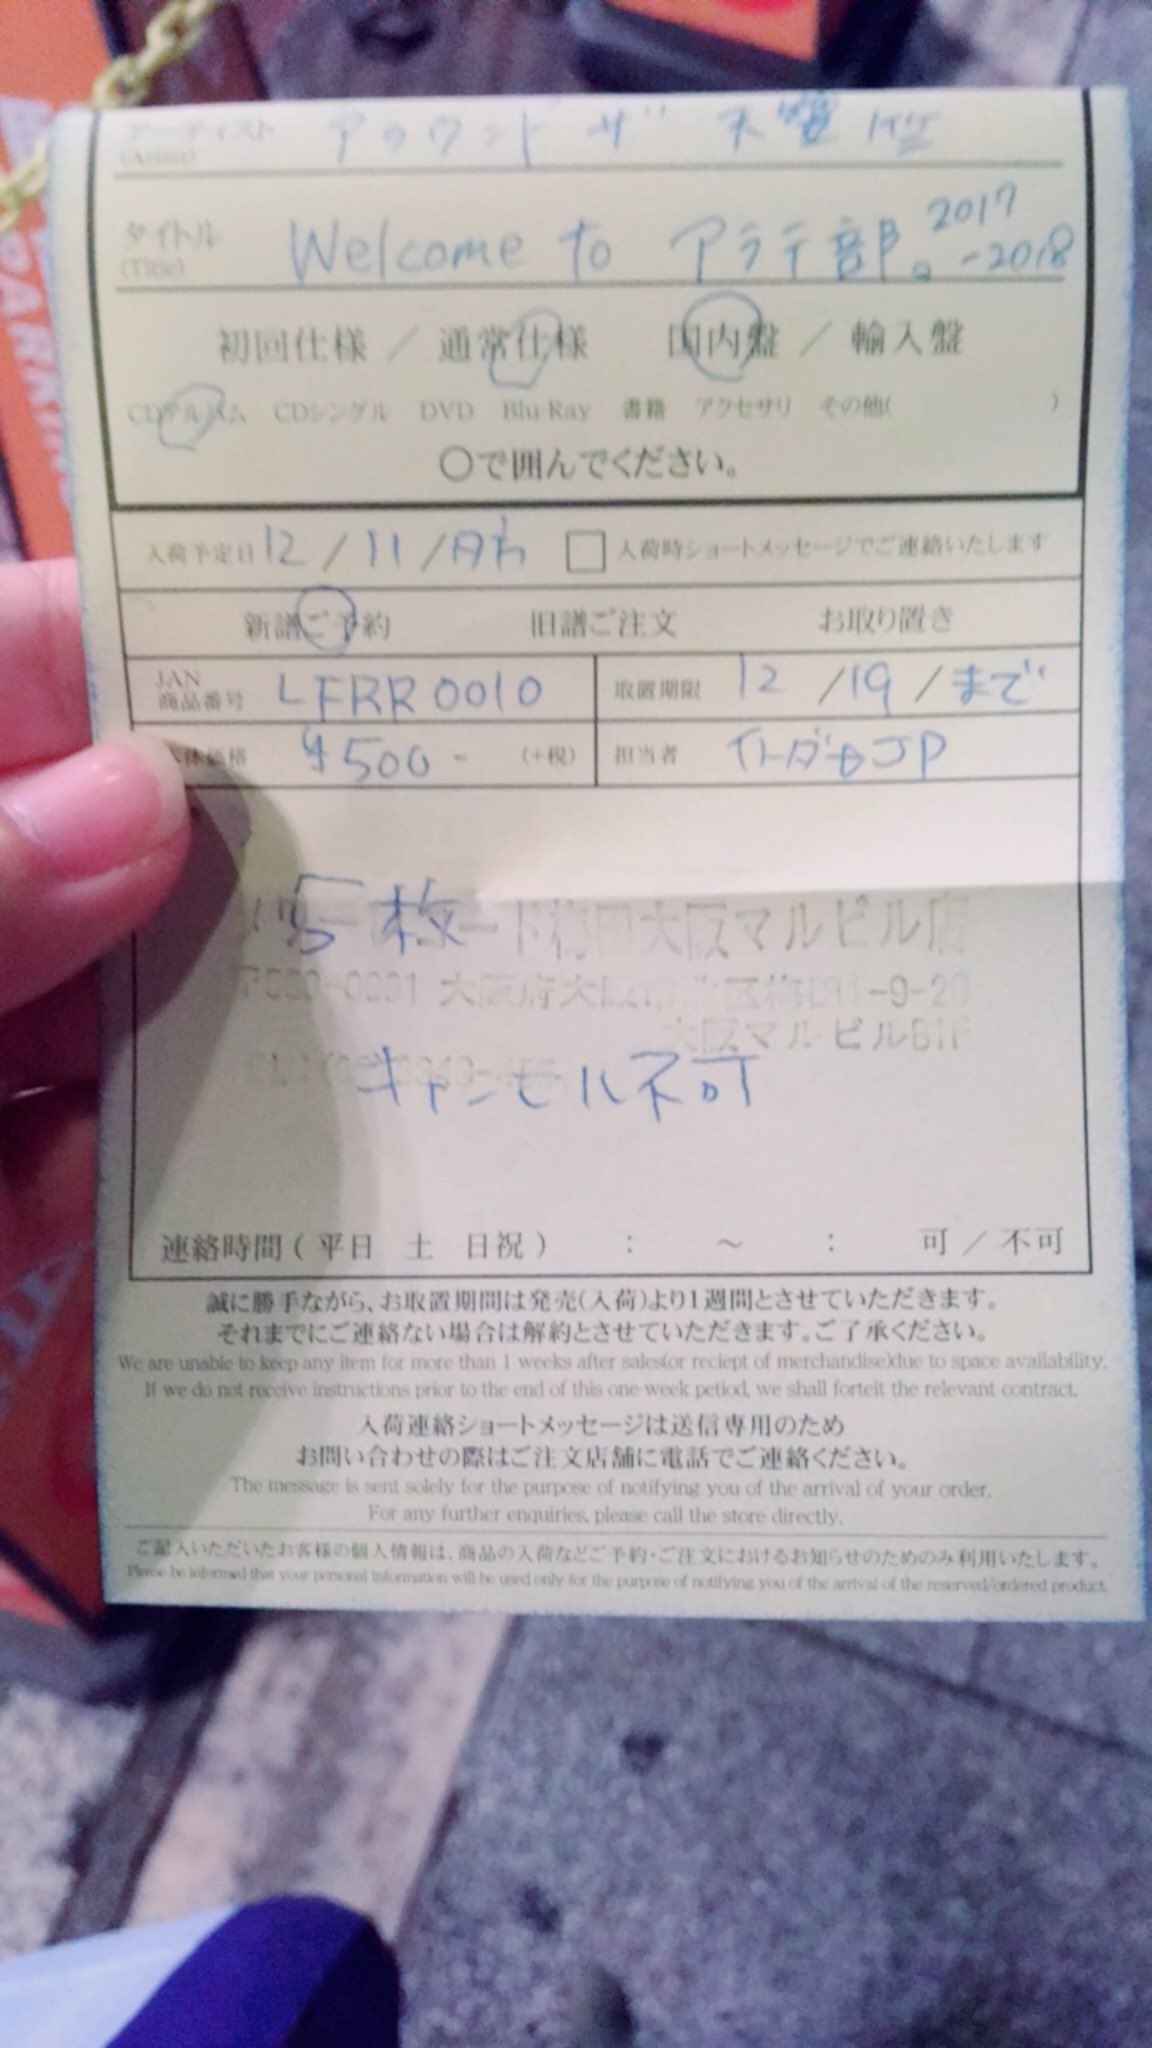 アーティスト アラウンドザ天竺
(Artist)
タイトル Welcome to アラテ部。2017
(Title) -2018
初回仕様 / 通常仕様 国内盤 / 輸入盤
CDアルバム CDシングル DVD Blu-Ray 書籍 アクセサリ その他( )
〇で囲んでください。
入荷予定日 12/11/ □ 入荷時ショートメッセージでご連絡いたします
新譜ご予約 旧譜ご注文 お取り置き
JAN
商品番号 LFRR0010 取置期限 12/19/まで
本体価格 ¥500- (+税) 担当者
5枚
レコード梅田大阪マルビル店
大阪マルビルB1F
キャンセル不可
連絡時間 ( 平日 土 日祝 ) : ～ : 可 / 不可
誠に勝手ながら、お取置期間は発売(入荷)より1週間とさせていただきます。
それまでにご連絡ない場合は解約とさせていただきます。ご了承ください。
We are unable to keep any item for more than 1 weeks after sales(or reciept of merchandise)due to space availability.
If we do not receive instructions prior to the end of this one-week petiod, we shall forteit the relevant contract.
入荷連絡ショートメッセージは送信専用のため
お問い合わせの際はご注文店舗に電話でご連絡ください。
The message is sent solely for the purpose of notifying you of the arrival of your order.
For any further enquiries, please call the store directly.
ご記入いただいたお客様の個人情報は、商品の入荷などご予約・ご注文におけるお知らせのためのみ利用いたします。
Please be informed that your personal information will be used only for the purpose of notifying you of the arrival of the reserved/ordered product.